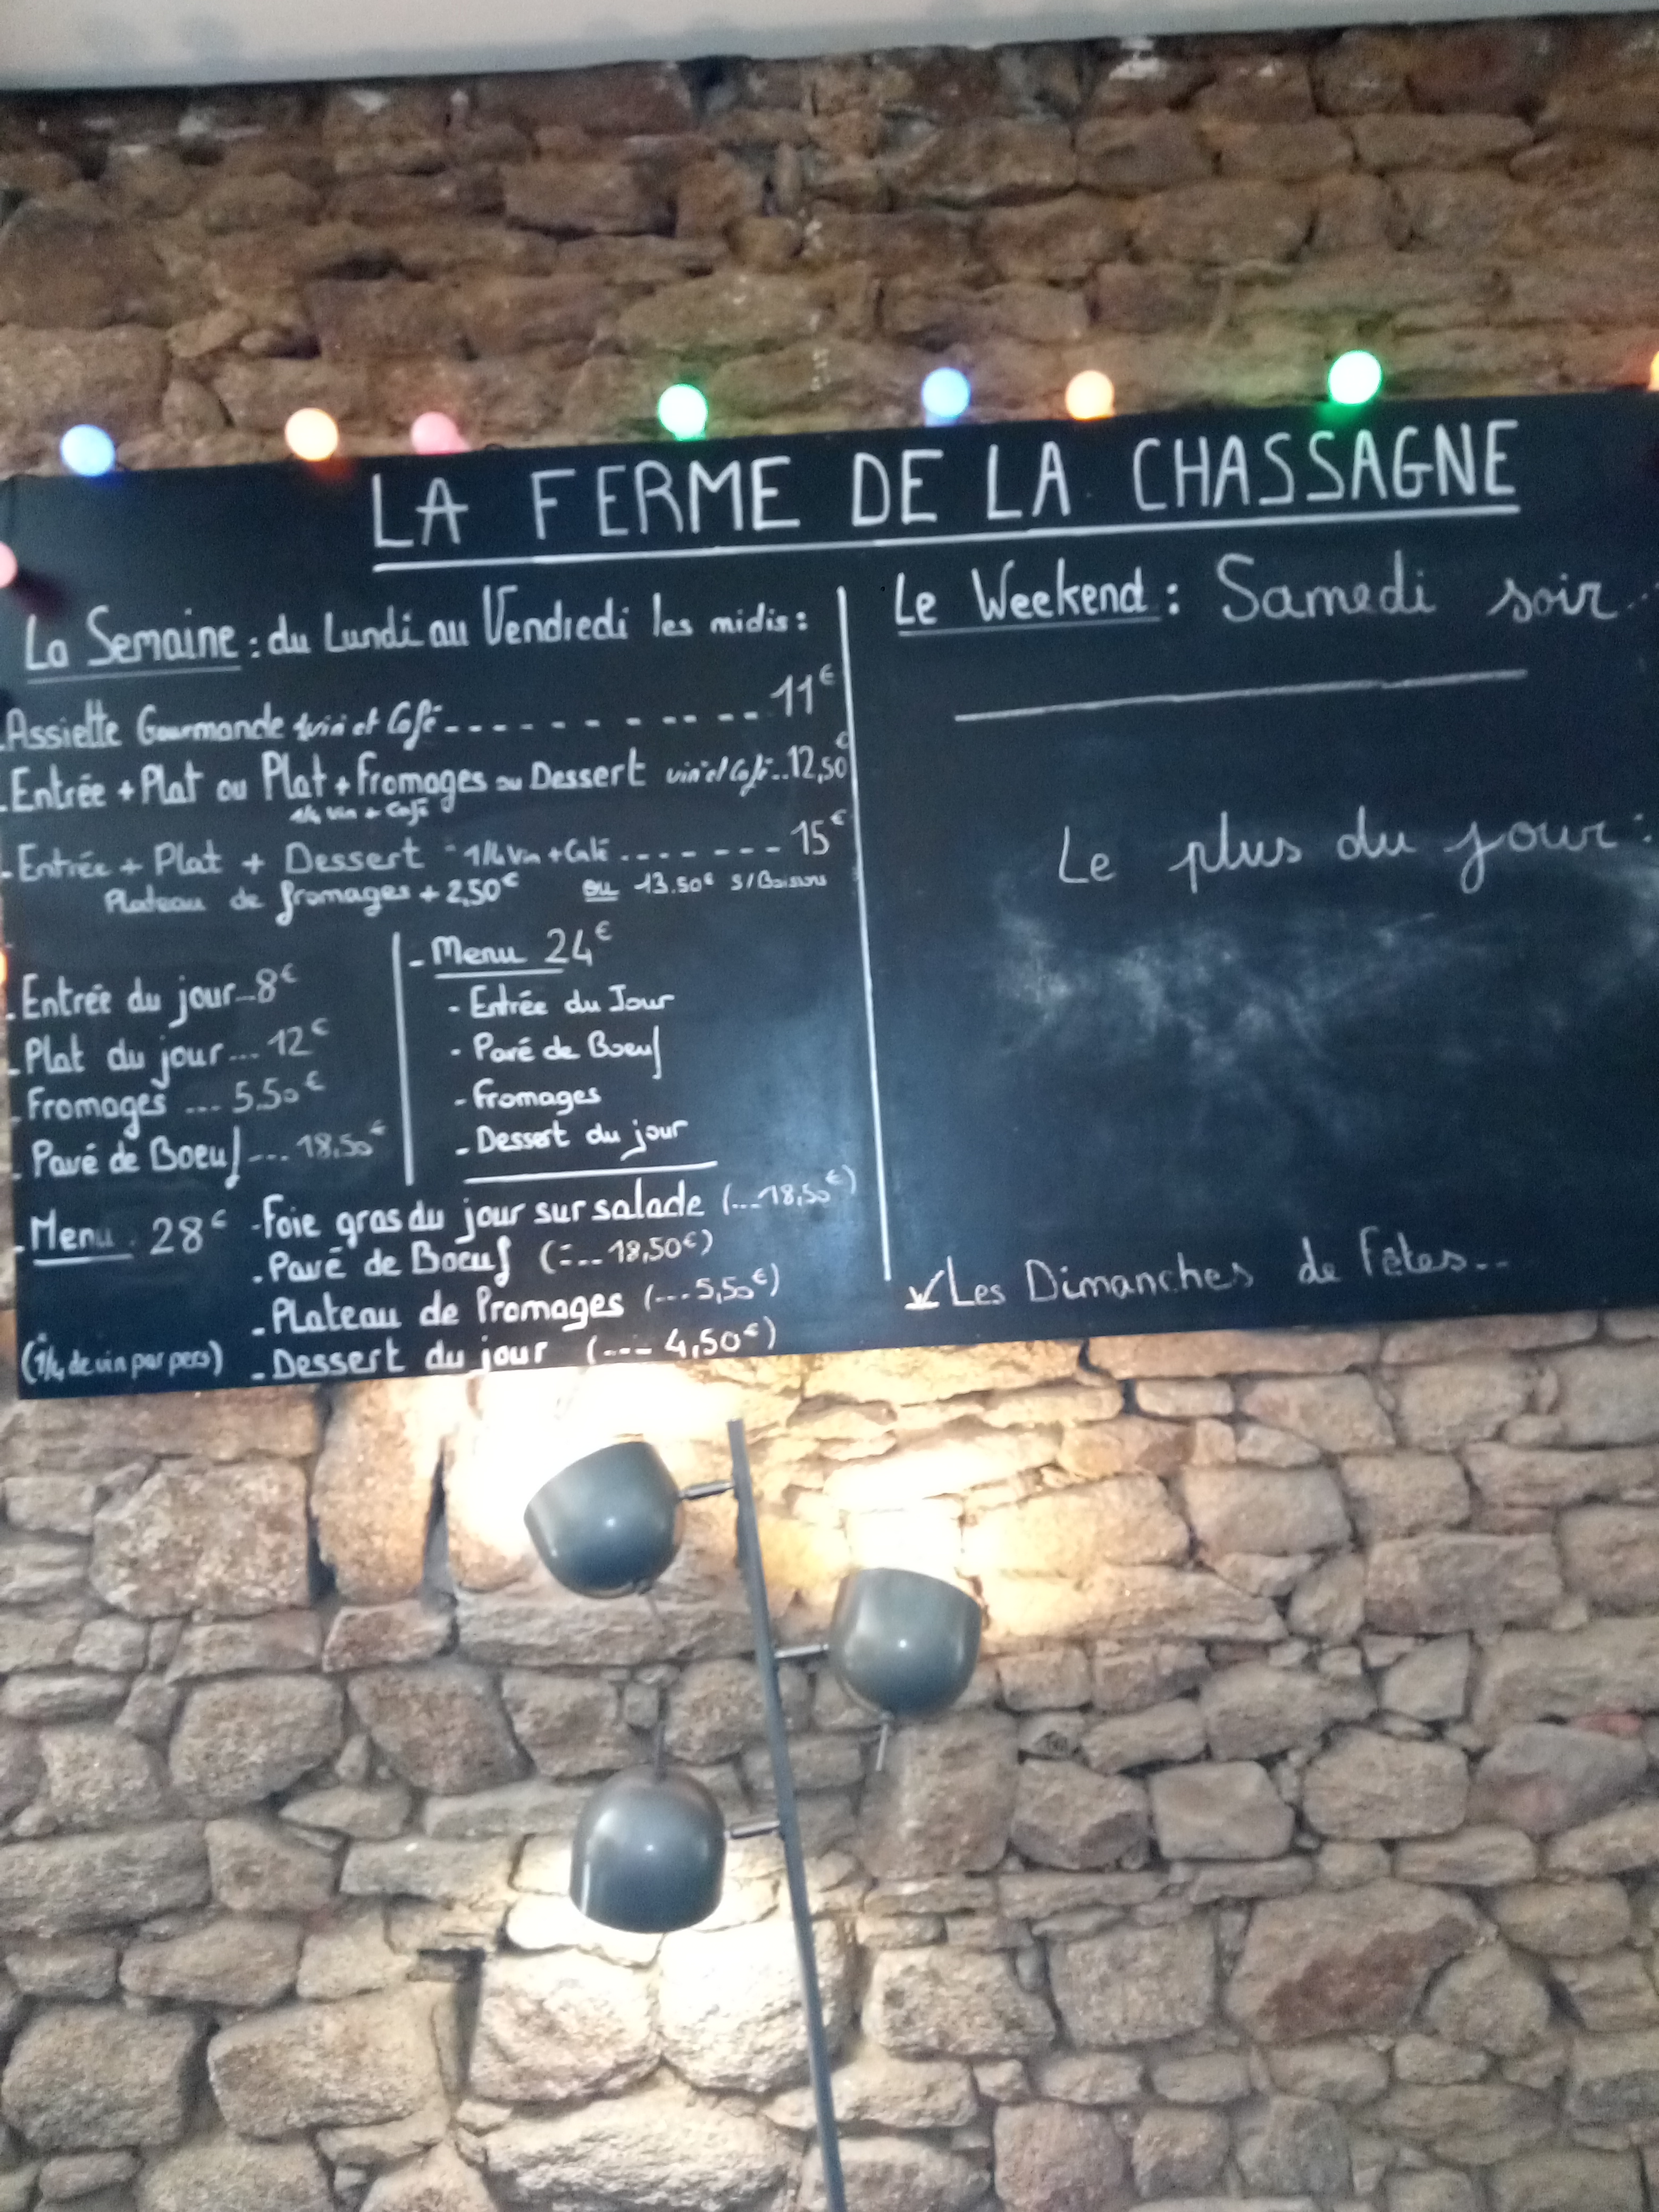 LA FERME DE LA CHASSAGNE
La Semaine : du Lundi au Vendredi les midis :
- Assiette Gourmande vin et Café ------------ 11€
- Entrée + Plat ou Plat + Fromages ou Dessert vin et Café .. 12,50€
1/4 Vin + Café
- Entrée + Plat + Dessert - 1/4 Vin + Café ------- 15€
Plateau de fromages + 2,50€ ou 13.50€ S/Boissons
- Entrée du jour ... 8€
- Plat du jour ... 12€
- Fromages ... 5.50€
- Pavé de Boeuf ---- 18,50€
- Menu 24€
- Entrée du Jour
- Pavé de Boeuf
- Fromages
- Dessert du jour
- Menu 28€ - Foie gras du jour sur salade (...18,50€)
- Pavé de Boeuf (-... 18,50€)
- Plateau de Fromages (---5,50€)
(1/4 de vin par pers) - Dessert du jour (--- 4,50€)
Le Weekend : Samedi soir
Le plus du jour :
Les Dimanches de Fêtes...